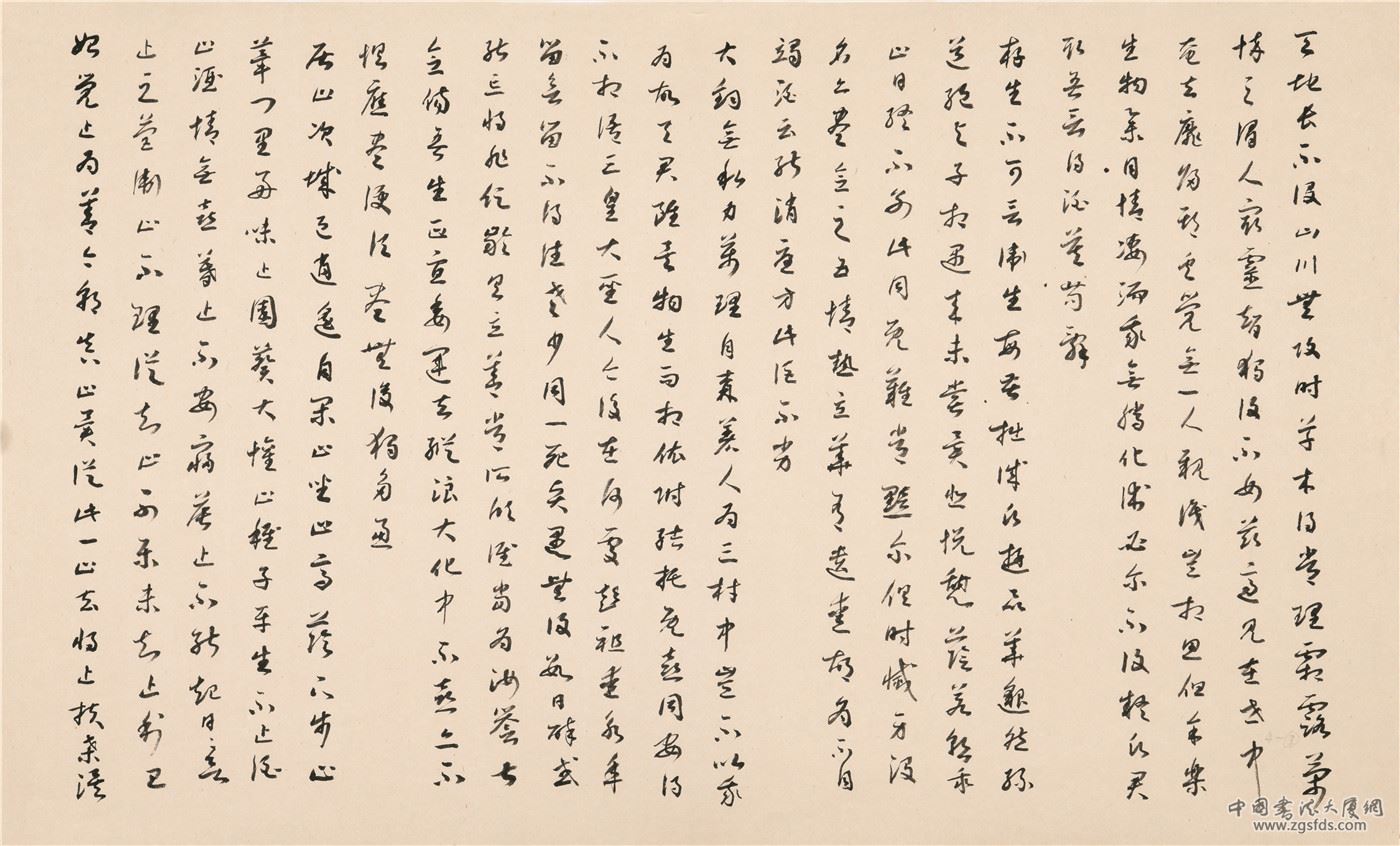 天地長不沒山川無改時草木得常理霜露榮
悴之謂人最靈智獨復不如茲適見在世中
奄去靡歸期奚覺無一人親識豈相思但余平
生物舉目情淒洏我無騰化術必爾不復疑願君
取吾言得酒莫苟辭
存生不可言衛生每苦拙誠願遊崑華邈然茲
道絕與子相遇來未嘗異悲悅憩蔭若暫乖
止日終不別此同既難常黯爾俱時滅身沒
名亦盡念之五情熱立善有遺愛胡為不自
竭酒云能消憂方此詎不劣
大鈞無私力萬理自森著人為三才中豈不以我
為故與君雖異物生而相依附結托既喜同安得
不相語三皇大聖人今復在何處彭祖愛永年
留欲留不得住老少同一死賢愚無復數日醉或
能忘將非促齡具立善常所欣誰當為汝譽甚
念傷吾生正宜委運去縱浪大化中不喜亦不
懼應盡便須盡無復獨多慮
居止次城邑逍遙自閑止坐止高蔭下步止
蓽門里好味止園葵大懽止稚子平生不止酒
止酒情無喜暮止不安寢晨止不能起日日欲
止之營衛止不理徒知止不樂未知止利己
始覺止為善今朝真止矣從此一止去將止扶桑涘
中國書法大廈網
www.zgsfds.com